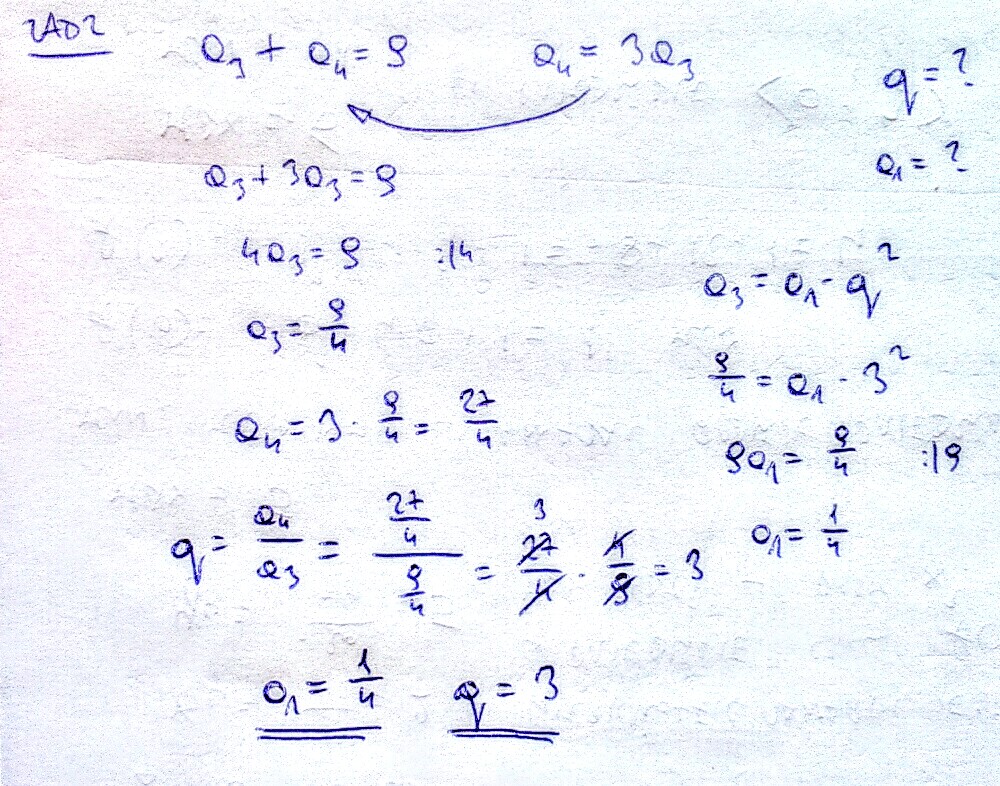 ZAD2
a₃ + a₄ = 9 a₄ = 3a₃
q = ?
a₁ = ?
a₃ + 3a₃ = 9
4a₃ = 9 :|4
a₃ = 9/4
a₄ = 3 · 9/4 = 27/4
q = a₄/a₃ = (27/4)/(9/4) = 27/4 · 4/9 = 3
3
a₃ = a₁ · q²
9/4 = a₁ · 3²
9a₁ = 9/4 :|9
a₁ = 1/4
a₁ = 1/4 q = 3